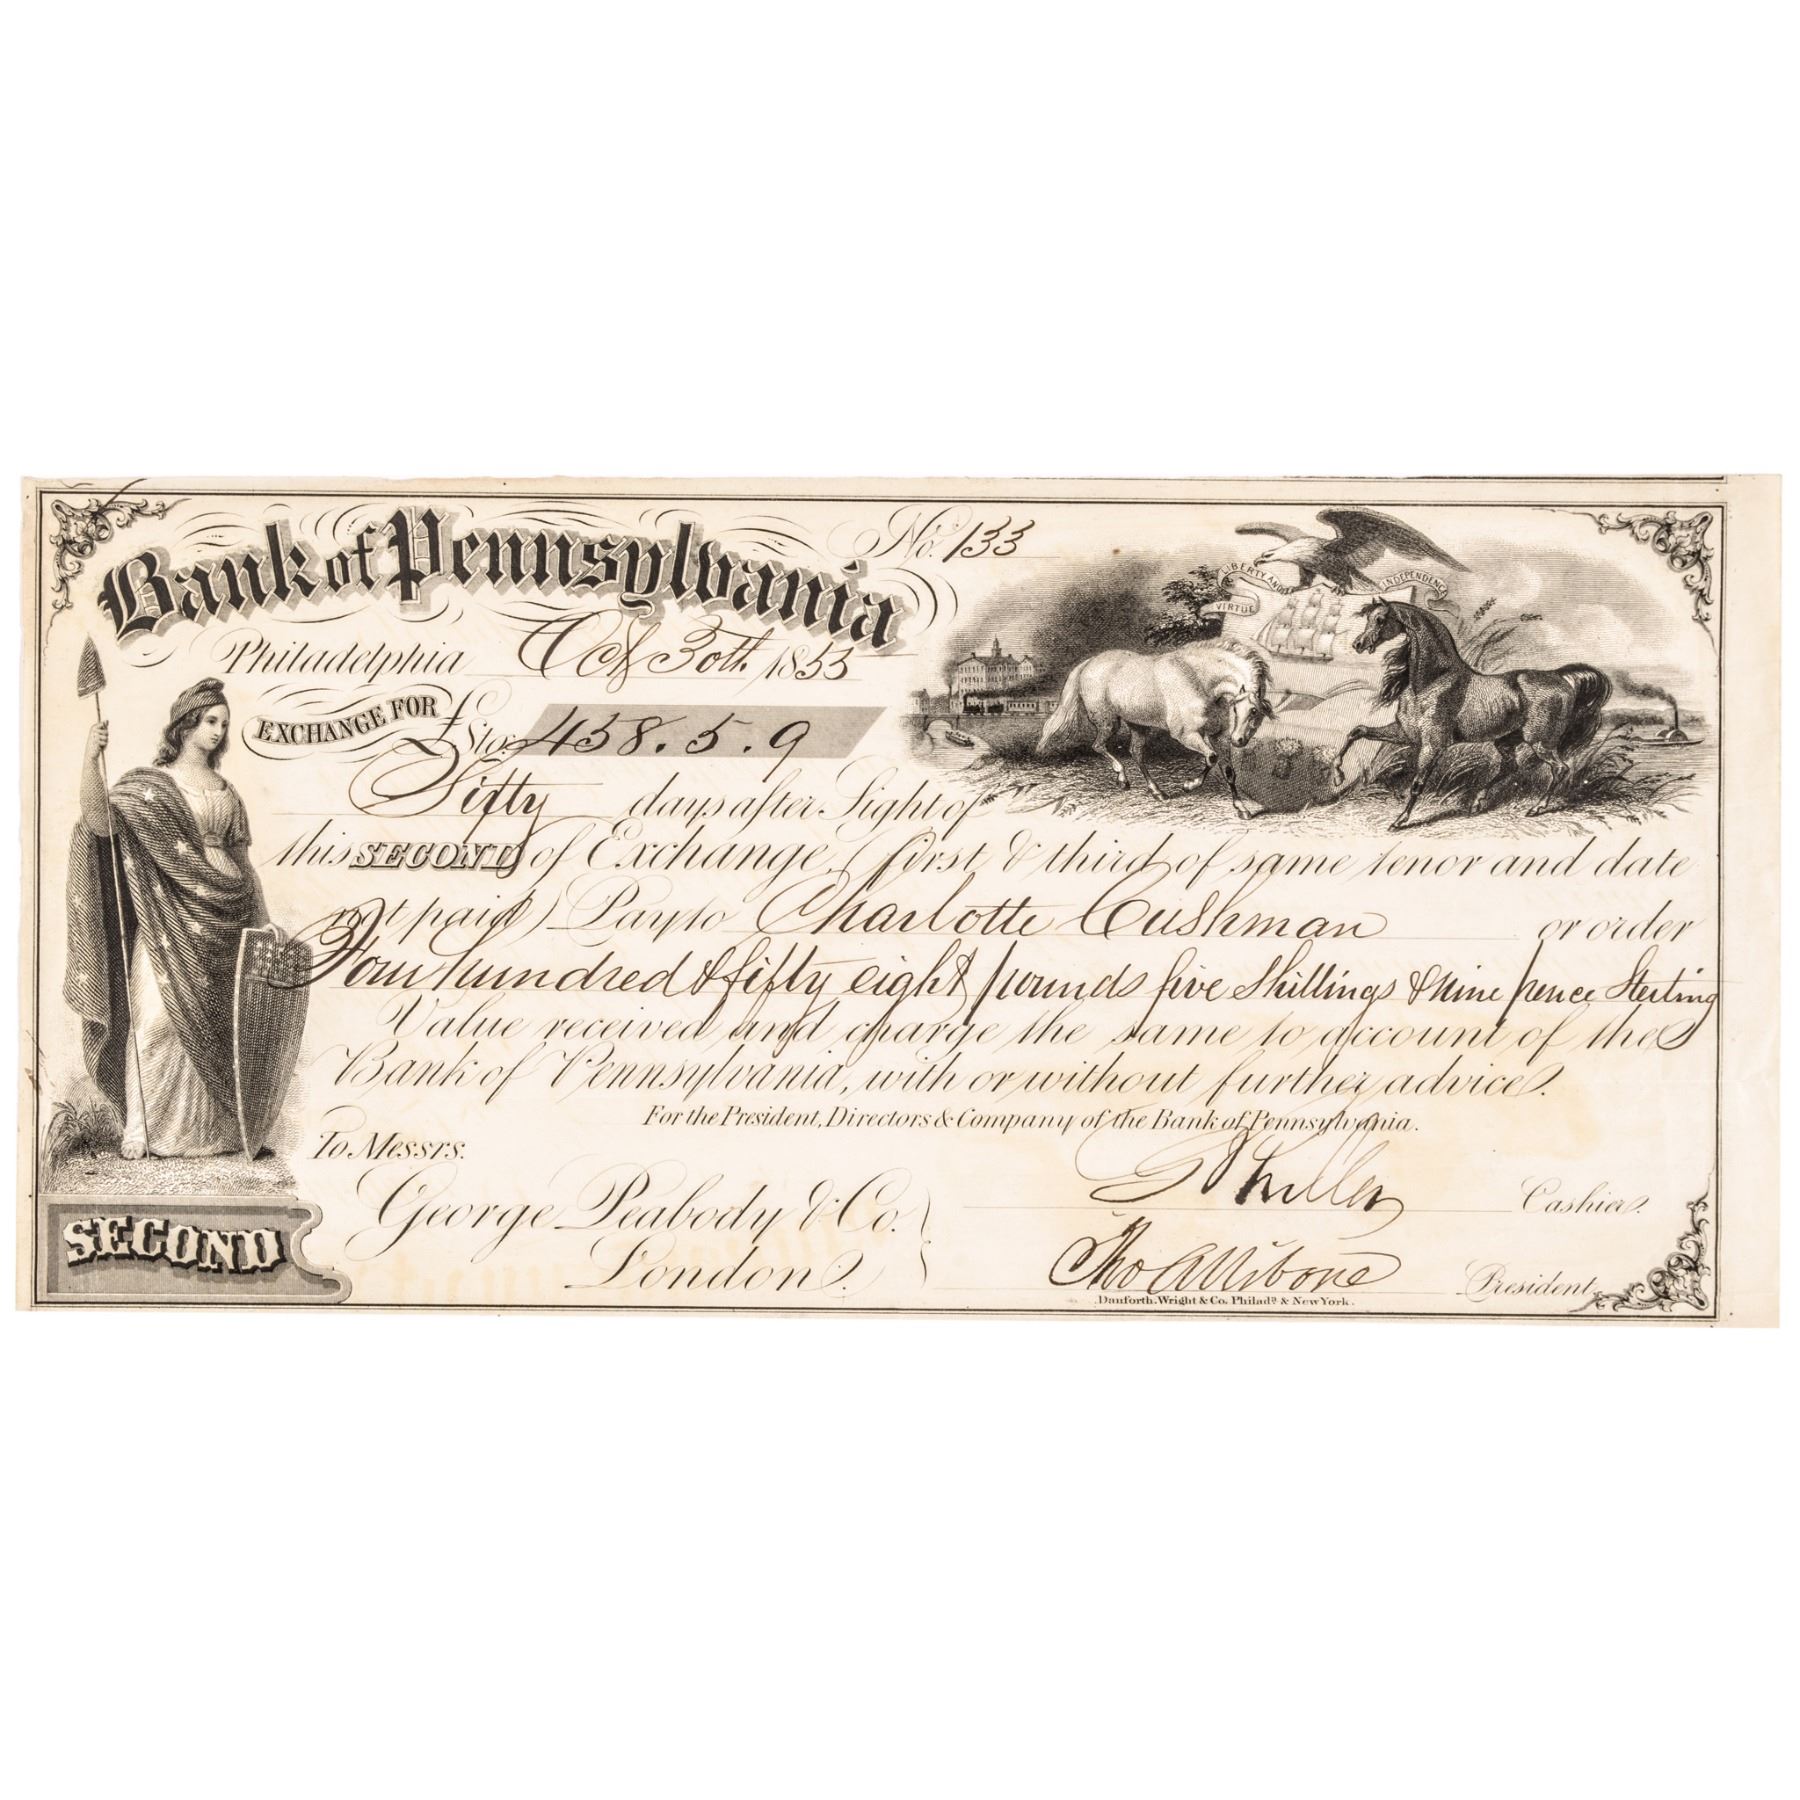 Bank of Pennsylvania
No. 133
VIRTUE LIBERTY AND INDEPENDENCE
Philadelphia Oct 30th 1855
EXCHANGE FOR £ Stg: 458.5.9
Sixty days after Sight of
this SECOND of Exchange, (first & third of same tenor and date
not paid) Pay to Charlotte Cushman or order
Four hundred & fifty eight pounds five Shillings & nine pence Sterling
Value received and charge the same to account of the
Bank of Pennsylvania, with or without further advice.
For the President, Directors & Company of the Bank of Pennsylvania.
To Messrs.
George Peabody & Co.
London.
Cashier.
Tho Allibone President
SECOND
Danforth, Wright & Co. Philada. & New York.